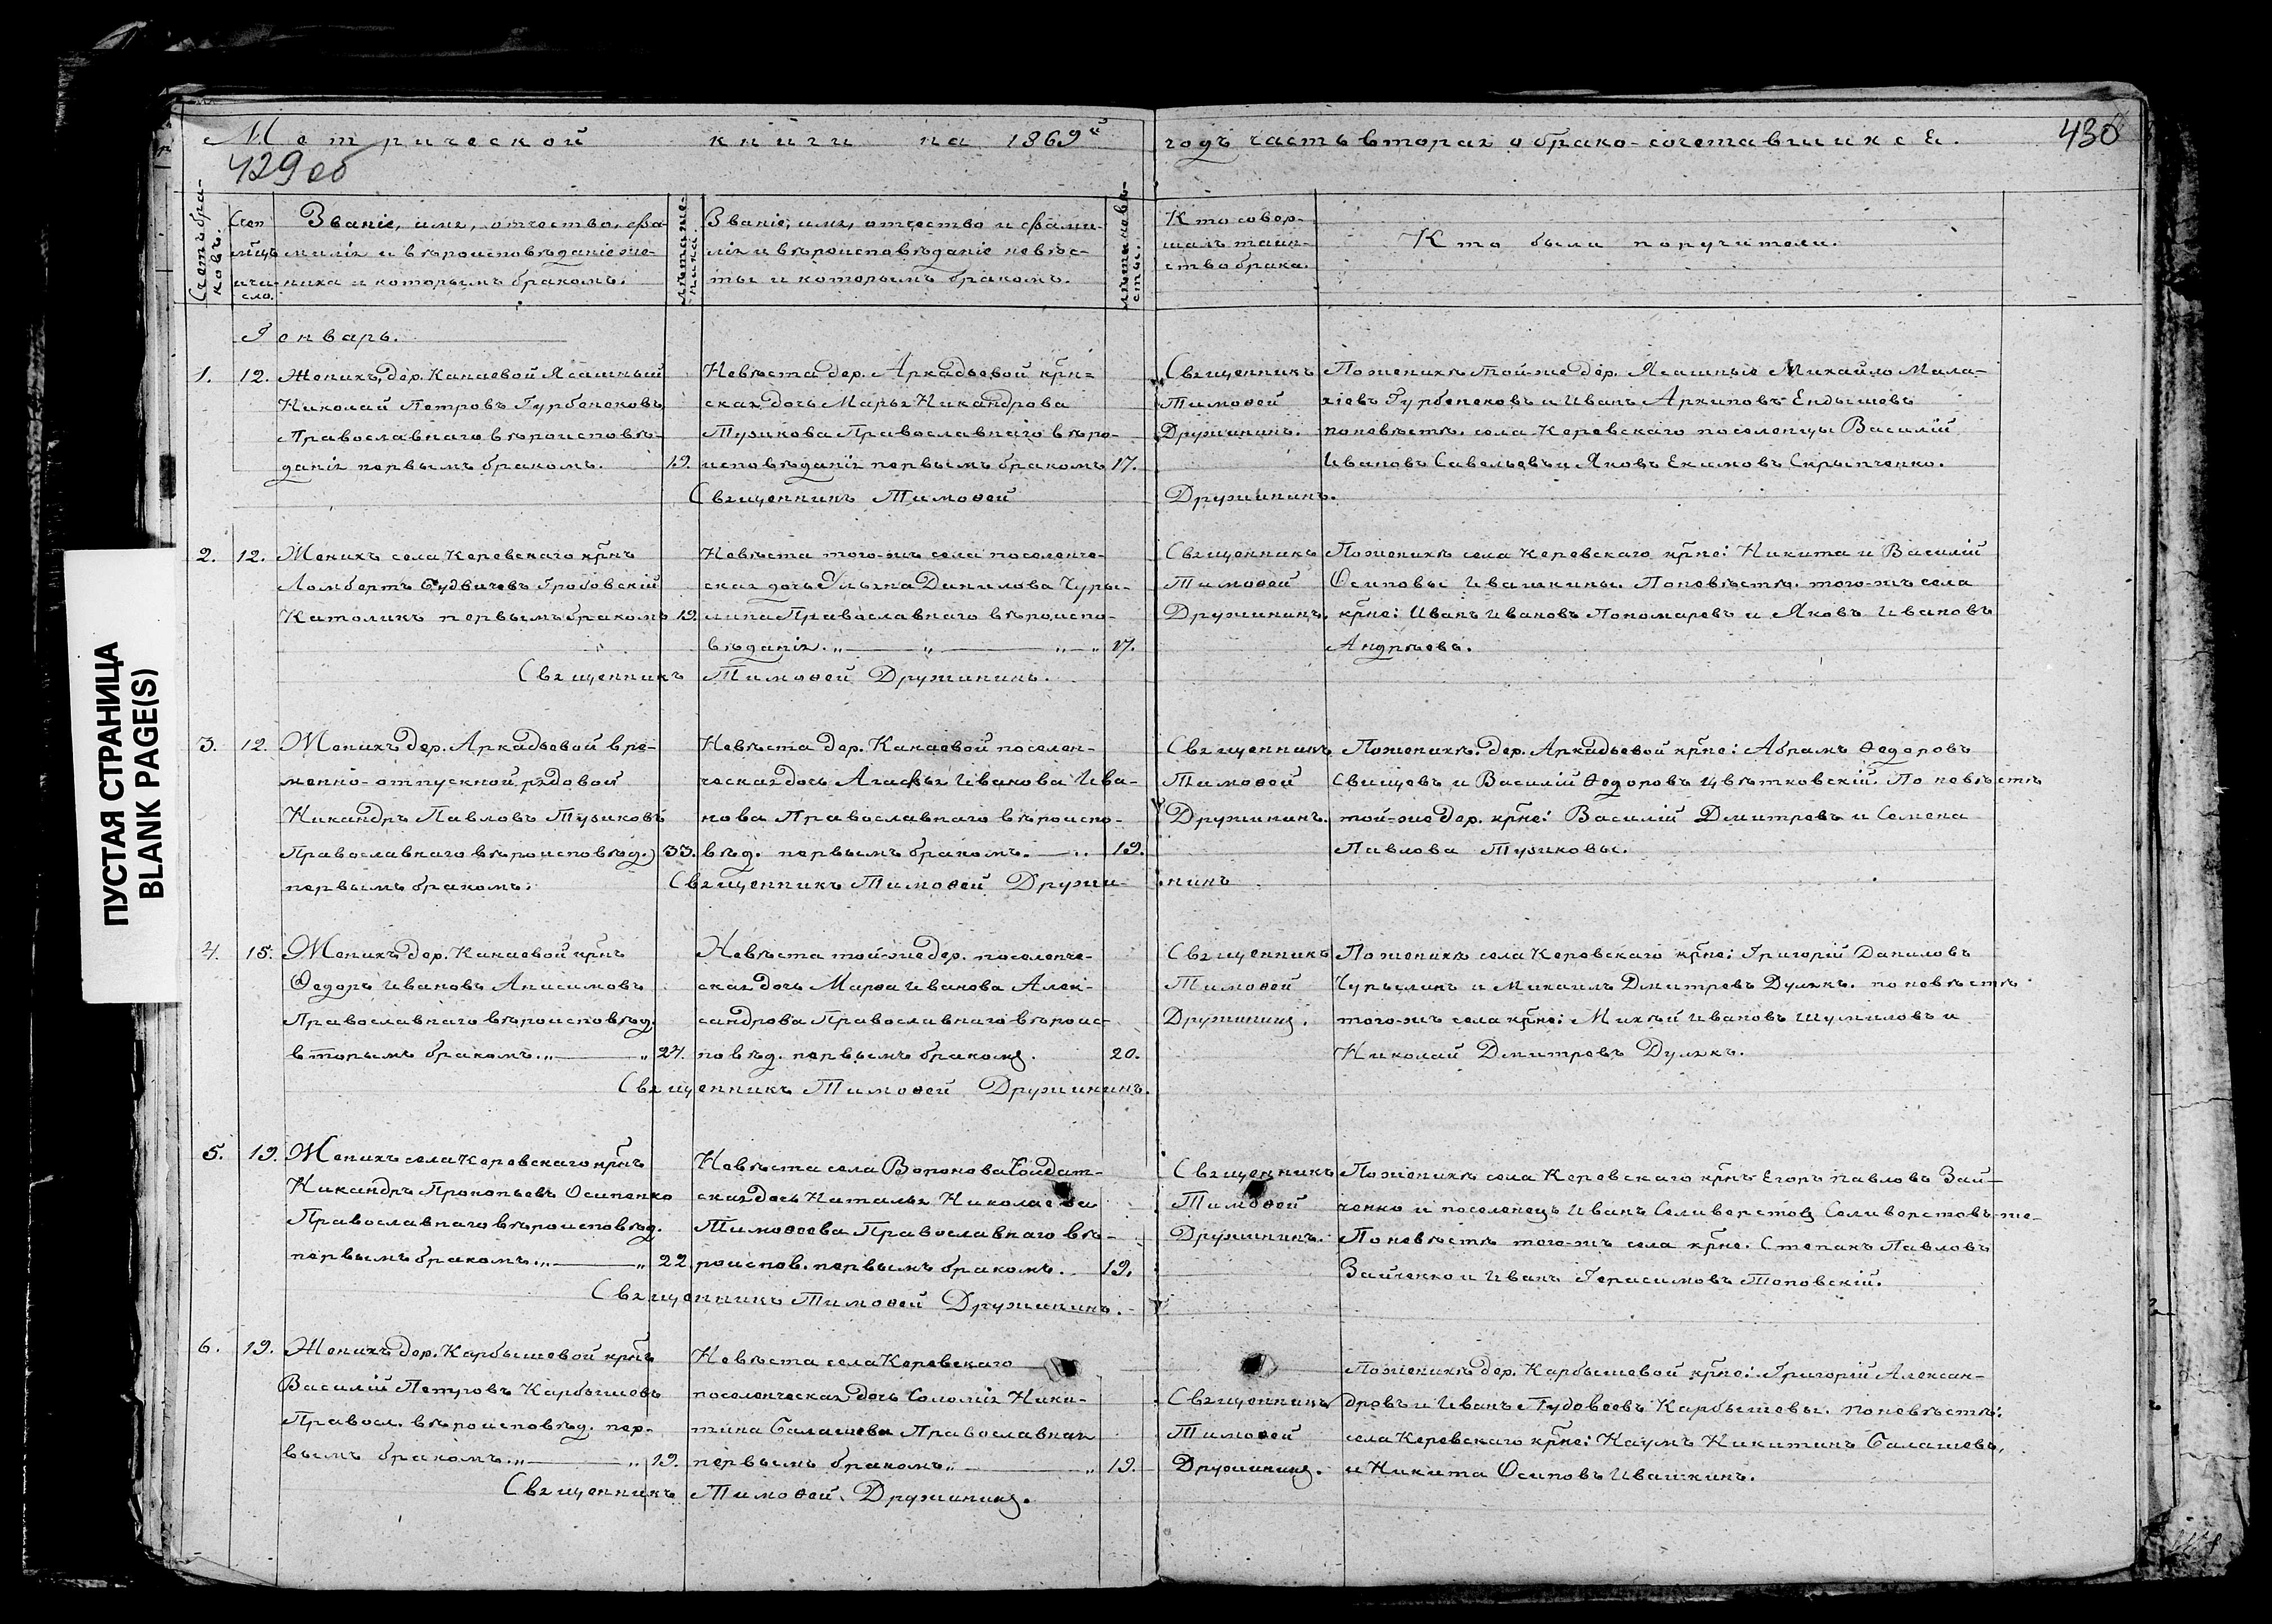 Метрической книги на 1869й годъ часть вторая о брако-сочетавшихся.
429 об
430
Счетъ бра-
ковъ.
Счет
мѣцъ
и чи-
сло.
Званіе, имя, отчество, фа-
милія и вѣроисповѣданіе же-
ниха и которымъ бракомъ.
Лѣта же-
ниха.
Званіе, имя, отчество и фами-
лія и вѣроисповѣданіе невѣс-
ты и которымъ бракомъ.
Лѣта невѣ-
сты.
Кто совер-
шалъ таин-
ство брака.
Кто были поручители.
Генварь.
1.
12.
Женихъ, дер. Канаевой Ясашный
Николай Петровъ Гурбенековъ
Православнаго вѣроисповѣ-
данія первымъ бракомъ.
19.
Невѣста дер. Аркадьевой крн-
ская дочь Марья Никандрова
Тузикова Православнаго вѣро-
исповѣданія первымъ бракомъ
17.
Священникъ
Тимоѳей
Дружининъ.
По женихѣ той-же дер. Ясашные Михайло Мала-
хіевъ Гурбенековъ и Иванъ Архиповъ Ендышевъ
по невѣстѣ. села Керевскаго поселенцы Василій
Ивановъ Савельевъ и Яковъ Екимовъ Скрыпченко.
Священникъ Тимоѳей Дружининъ.
2.
12.
Женихъ села Керевскаго крнъ
Ломбертъ Гробовскій
Католикъ первымъ бракомъ
19.
Невѣста того-жъ села поселенче-
ская дочь Ульяна Данилова Чуры-
лина Православнаго вѣроиспо-
вѣданія. „ — „ — „ — „
17.
Священникъ
Тимоѳей
Дружининъ.
По женихѣ села Керевскаго крне: Никита и Василій
Осиповы Ивашкины. По невѣстѣ. того-жъ села
крне: Иванъ Ивановъ Пономаревъ и Яковъ Ивановъ
Андрѣевъ.
Священникъ Тимоѳей Дружининъ.
3.
12.
Женихъ дер. Аркадьевой вре-
менно-отпускной рядовой
Никандръ Павловъ Тузиковъ
Православнаго вѣроисповѣд.
первымъ бракомъ.
33.
Невѣста дер. Канаевой поселен-
ческая дочь Агафья Иванова Ива-
нова Православнаго вѣроиспо-
вѣд. первымъ бракомъ. —
19.
Священникъ
Тимоѳей
Дружининъ.
По женихѣ. дер. Аркадьевой крне: Абрамъ Ѳедоровъ
Свищевъ и Василій Ѳедоровъ Цвѣтковскій. По невѣстѣ
той-же дер. крне: Василій Дмитревъ и Семена
Павлова Тузиковы.
Священникъ Тимоѳей Дружининъ
4.
15.
Женихъ дер. Канаевой крнъ
Ѳедоръ Ивановъ Анисимовъ
Православнаго вѣроисповѣд.
вторымъ бракомъ. „ — „
24.
Невѣста той-же дер. поселенче-
ская дочь Марѳа Иванова Алек-
сандрова Православнаго вѣроис-
повѣд. первымъ бракомъ.
20.
Священникъ
Тимоѳей
Дружининъ.
По женихѣ села Керевскаго крне: Григорій Даниловъ
Чурылинъ и Михаилъ Дмитревъ Дулякъ. по невѣстѣ
того-жъ села крне: Михѣй Ивановъ Шумиловъ и
Николай Дмитревъ Дулякъ.
Священникъ Тимоѳей Дружининъ.
5.
19.
Женихъ села Керевскаго крнъ
Никандръ Прокопьевъ Осипенко
Православнаго вѣроисповѣд.
первымъ бракомъ. „ — „
22
Невѣста села Воронова Солдат-
ская дочь Наталья Николаева
Тимоѳеева Православнаго вѣ-
роиспов. первымъ бракомъ.
19.
Священникъ
Тимоѳей
Дружининъ.
По женихѣ села Керевскаго крнъ Егоръ Павловъ Зай-
ченко и поселенецъ Иванъ Селиверстовъ Селиверстовъ-же-
По невѣстѣ того-жъ села крне. Степанъ Павловъ
Зайченко и Иванъ Герасимовъ Топовскій.
Священникъ Тимоѳей Дружининъ.
6.
19.
Женихъ дер. Карбышевой крнъ
Василій Петровъ Карбышевъ
Правосл. вѣроисповѣд. пер-
вымъ бракомъ. „ — „
19.
Невѣста села Керевскаго
поселенческая дочь Соломія Ники-
тина Балашева Православная
первымъ бракомъ „ — „
19.
Священникъ
Тимоѳей
Дружининъ.
По женихѣ дер. Карбышевой крне: Григорій Алексан-
дровъ и Иванъ Карбышевы. по невѣстѣ:
села Керевскаго крне: Наумъ Никитинъ Балашевъ,
и Никита Осиповъ Ивашкинъ.
Священникъ Тимоѳей Дружининъ.
ПУСТАЯ СТРАНИЦА
BLANK PAGE(S)